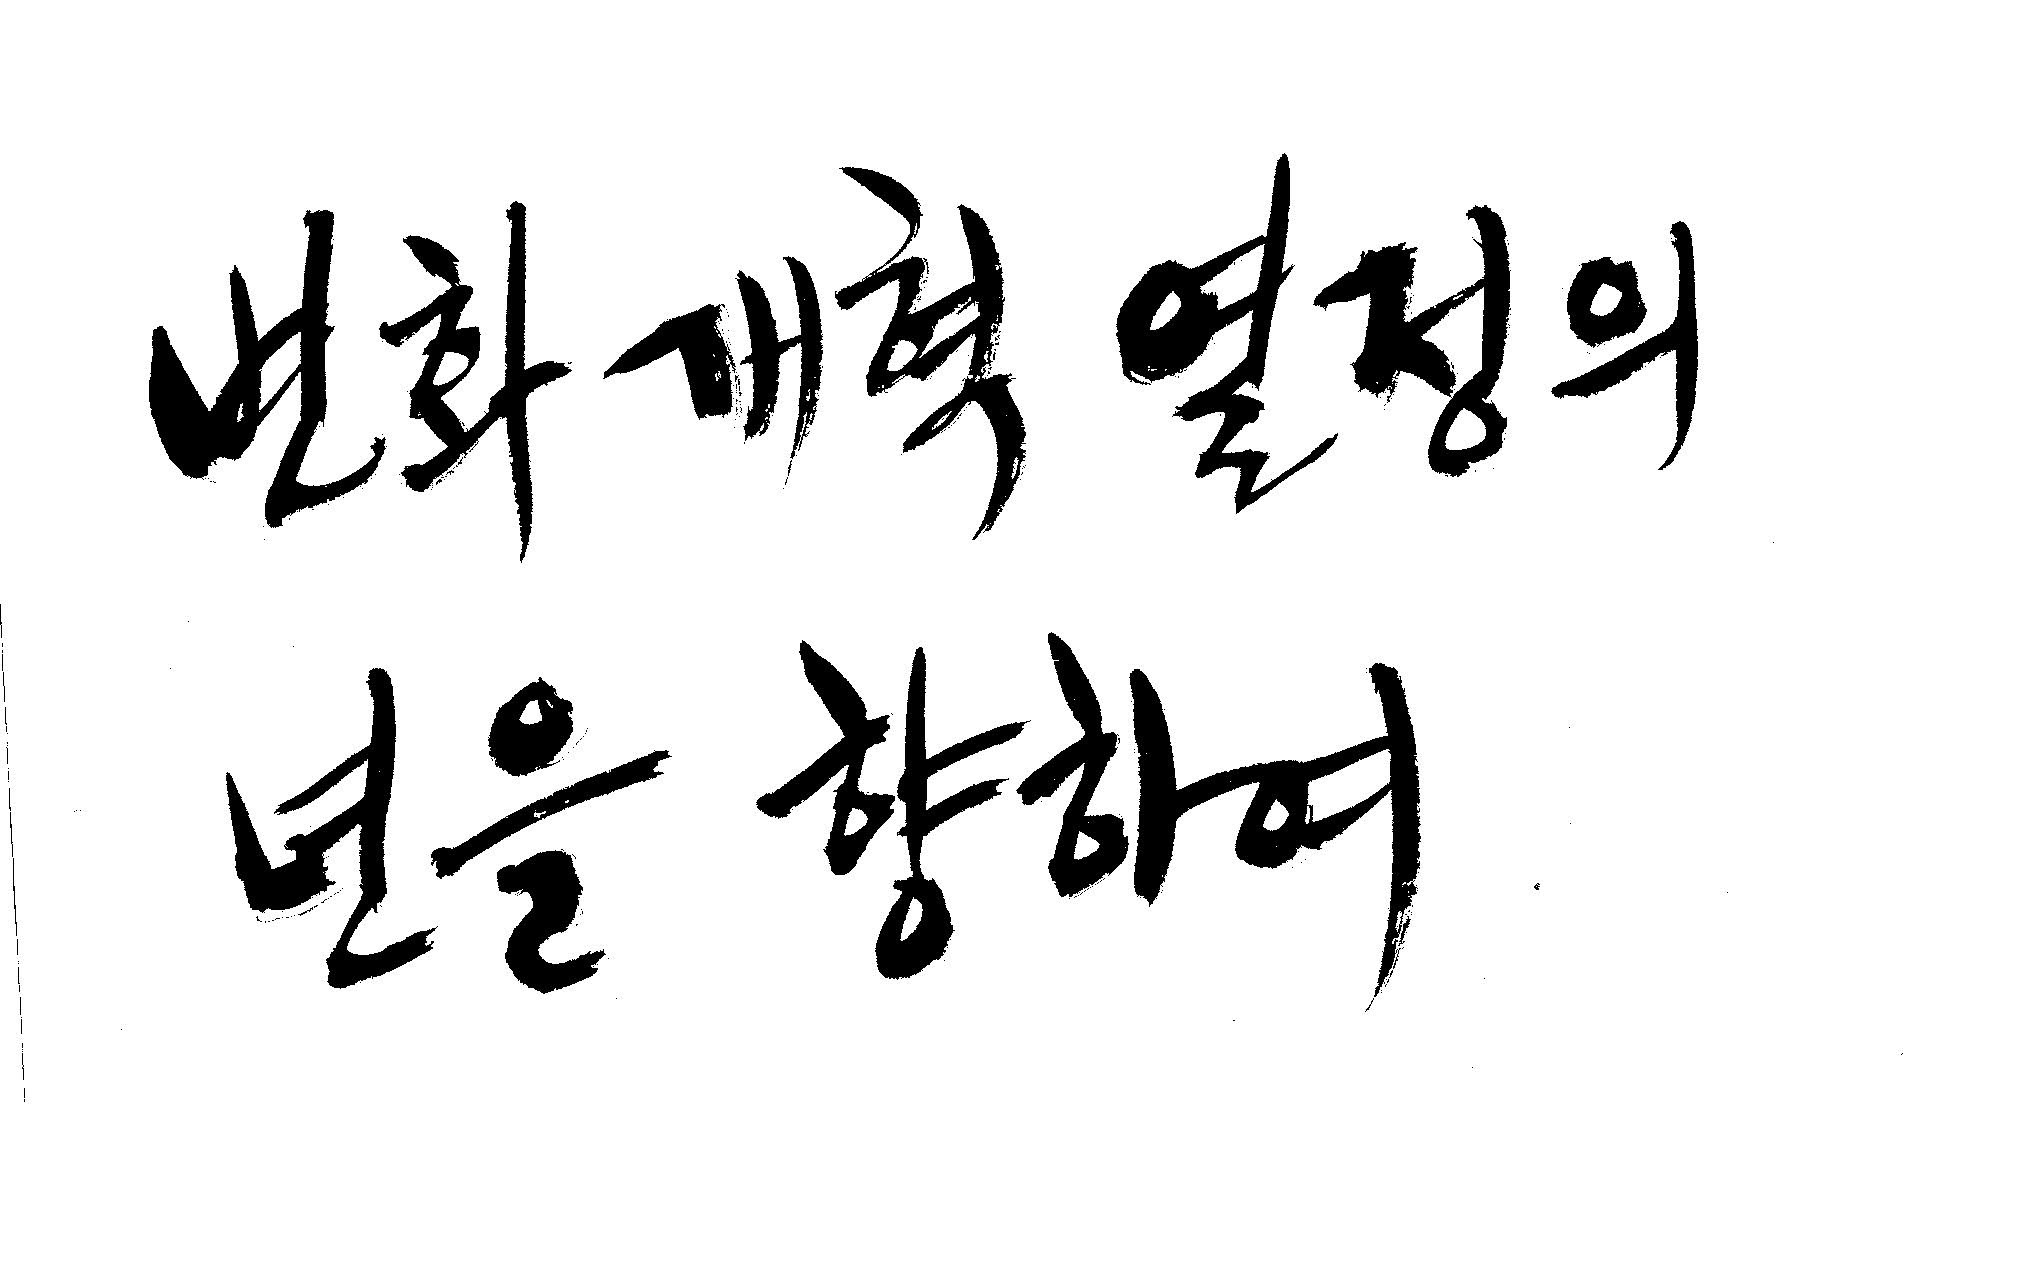 변화 개혁 열정의
년을 향하여